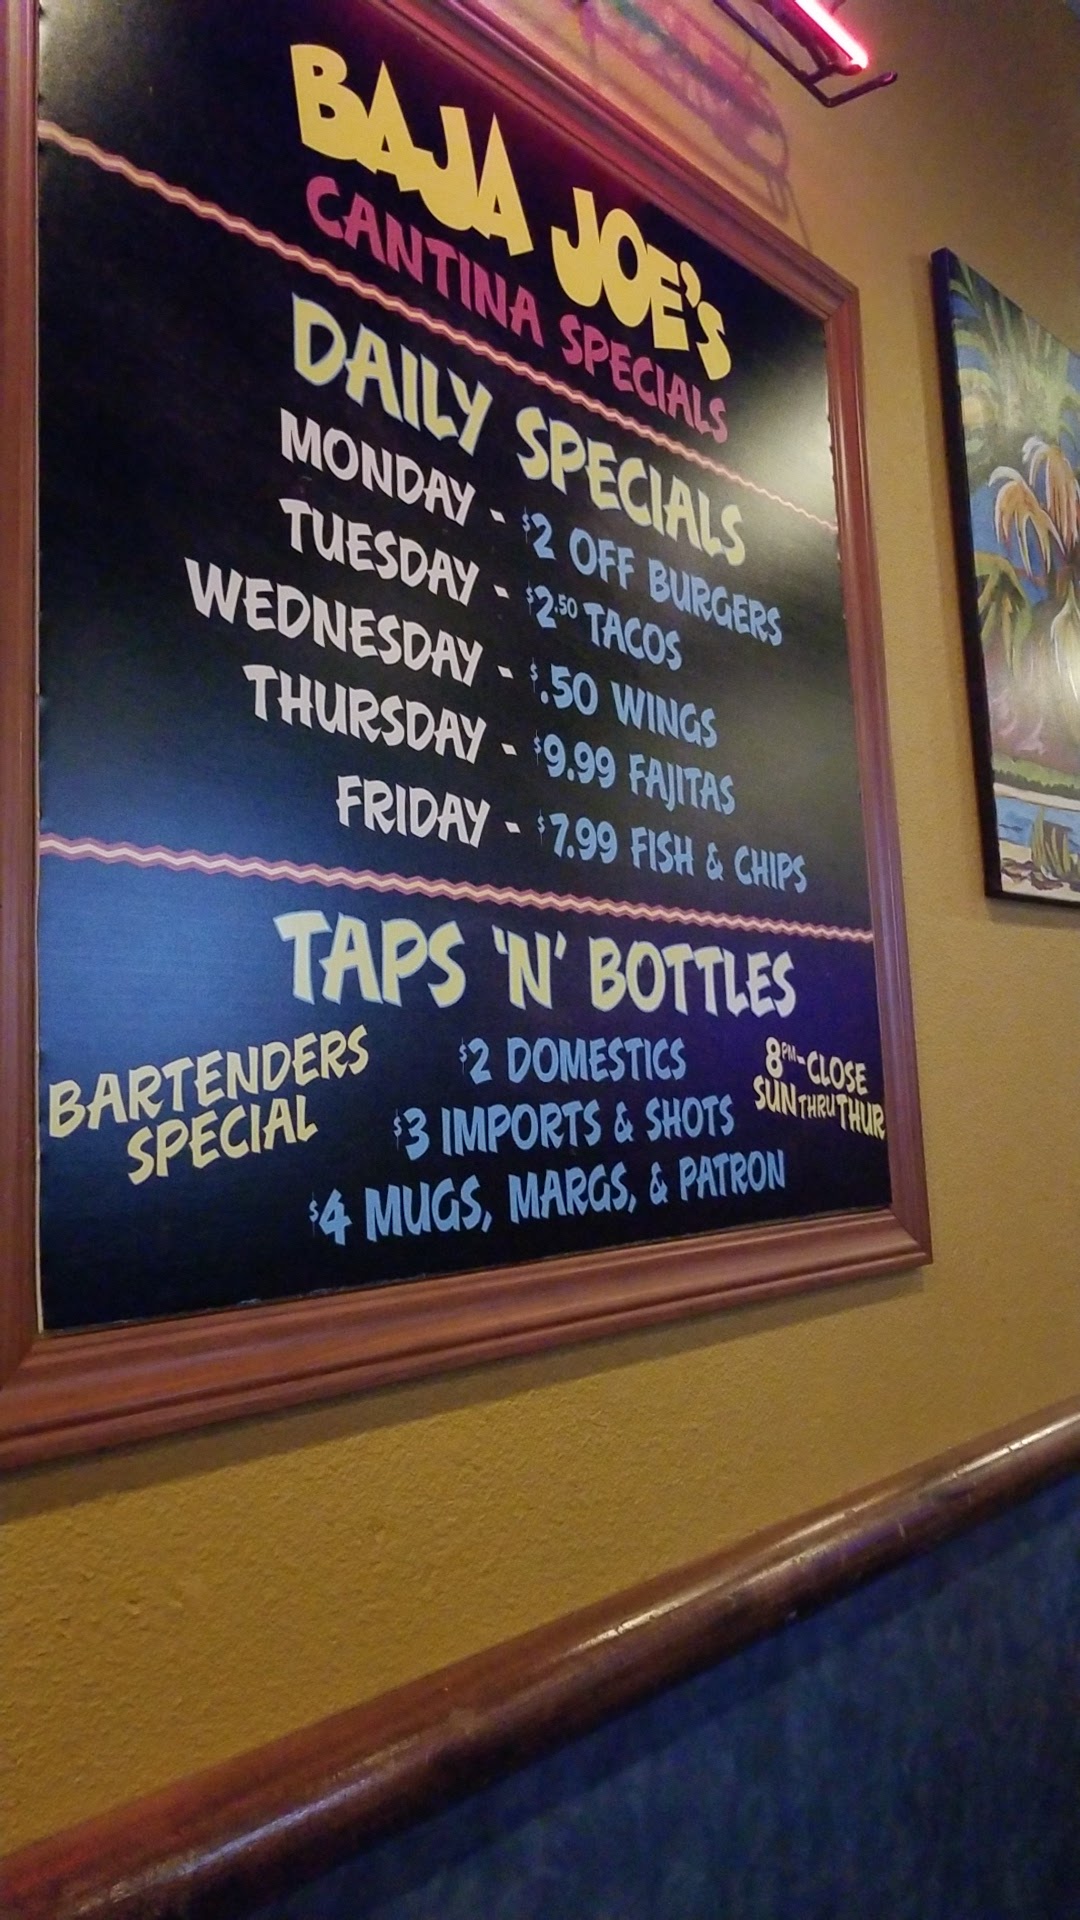 BAJA JOE'S
CANTINA SPECIALS
DAILY SPECIALS
MONDAY - $2 OFF BURGERS
TUESDAY - $2.50 TACOS
WEDNESDAY - $.50 WINGS
THURSDAY - $9.99 FAJITAS
FRIDAY - $7.99 FISH & CHIPS
TAPS 'N' BOTTLES
BARTENDERS
SPECIAL
$2 DOMESTICS
$3 IMPORTS & SHOTS
$4 MUGS, MARGS, & PATRON
8PM-CLOSE
SUN THRU THUR